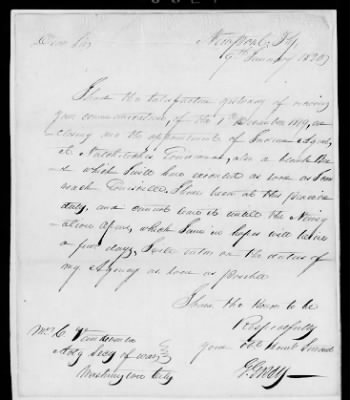 Dear Sir
Newport, Ky.
9th January 1820
I have the satisfaction of
your communication, of the 1st December 1819,
closing me the appointment of Indian Agent,
at Natchitoches Louisiana, also a blank
which I will have executed as soon as I can
reach Louisville. I have been at this
duty, and cannot leave it until the
above, which I am in hopes will be in
a few days, I will enter on the duties of
my Agency as soon as possible
I have the honor to be
Respectfully
your Obt Humb Servant
G. Gray
Mr. C. Vandeventer
Actg Secy of War
Washington City